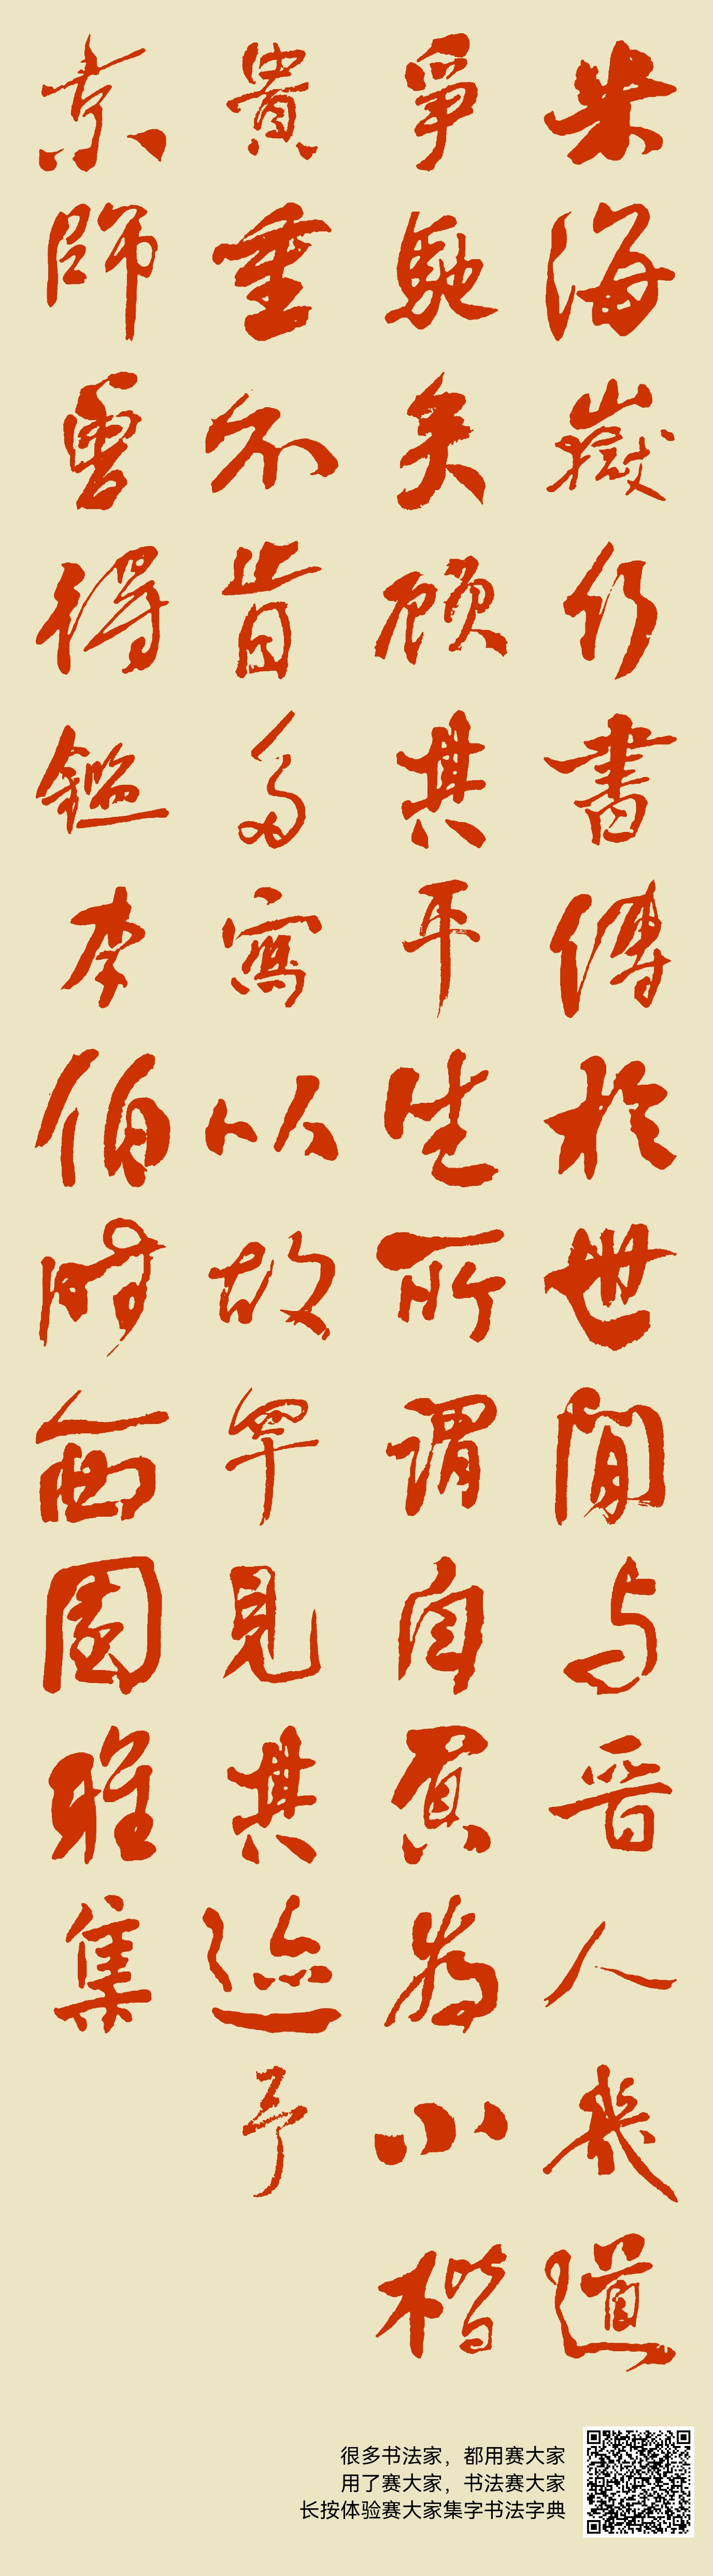 米海嶽行書傳於世閒与晋人道
爭馳矣顧其平生所謂自負為小楷
貴重不肯多寫以故罕見其迹予
京師曾得鑑李伯時西園雅集
很多书法家，都用赛大家
用了赛大家，书法赛大家
长按体验赛大家集字书法字典